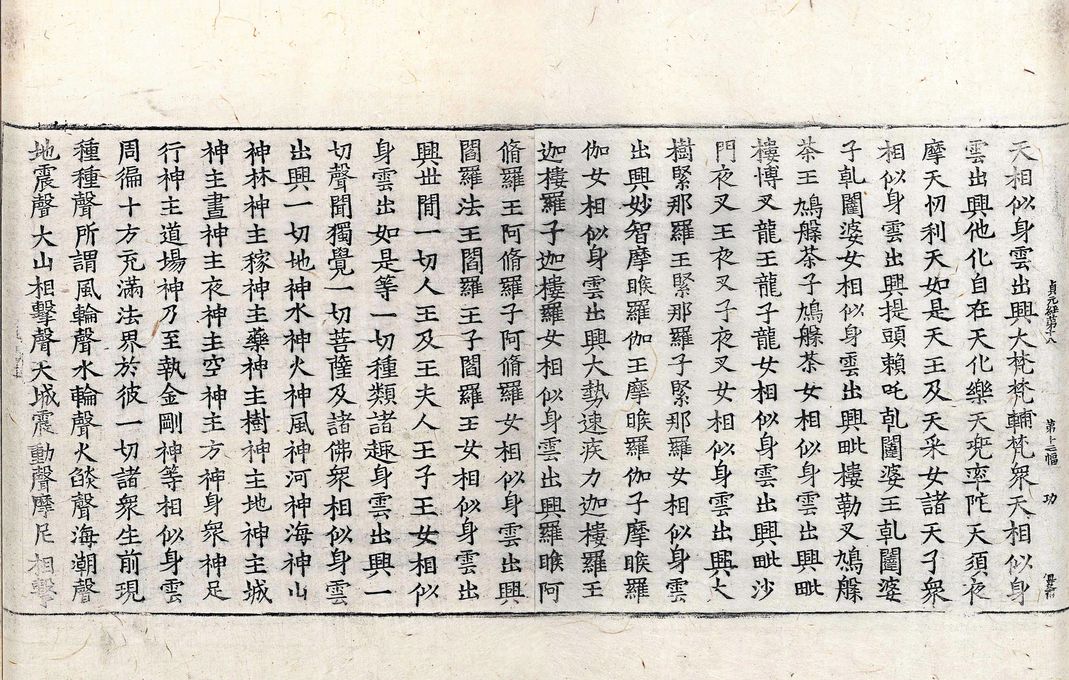 貞元經第十八 第十三幅 功
天相似身雲出興大梵梵輔梵衆天相似身
雲出興他化自在天化樂天兜率陀天須夜
摩天忉利天如是天王及天采女諸天子衆
相似身雲出興提頭賴吒乹闥婆王乹闥婆
子乹闥婆女相似身雲出興毗樓勒叉鳩槃
茶王鳩槃茶子鳩槃茶女相似身雲出興毗
樓博叉龍王龍子龍女相似身雲出興毗沙
門夜叉王夜叉子夜叉女相似身雲出興大
樹緊那羅王緊那羅子緊那羅女相似身雲
出興妙智摩睺羅伽王摩睺羅伽子摩睺羅
伽女相似身雲出興大勢速疾力迦樓羅王
迦樓羅子迦樓羅女相似身雲出興羅睺阿
脩羅王阿脩羅子阿脩羅女相似身雲出興
閻羅法王閻羅王子閻羅王女相似身雲出
興世間一切人王及王夫人王子王女相似
身雲出如是等一切種類諸趣身雲出興一
切聲聞獨覺一切菩薩及諸佛衆相似身雲
出興一切地神水神火神風神河神海神山
神林神主稼神主藥神主樹神主地神主城
神主晝神主夜神主空神主方神身衆神足
行神主道場神乃至執金剛神等相似身雲
周徧十方充滿法界於彼一切諸衆生前現
種種聲所謂風輪聲水輪聲火燄聲海潮聲
地震聲大山相擊聲天城震動聲摩尼相擊